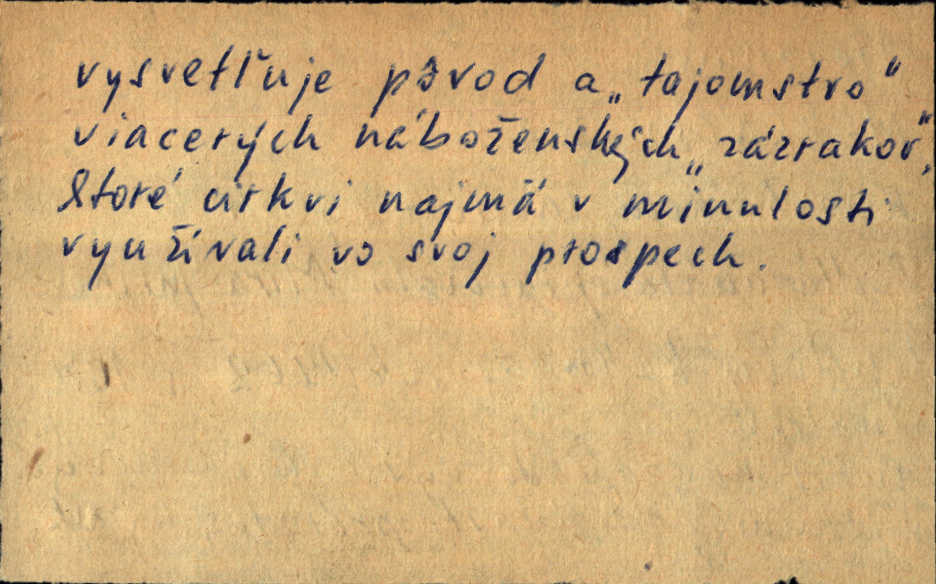 vysvetľuje pôvod a „tajomstvo“
viacerých náboženských „zázrakov“,
ktoré cirkvi najmä v minulosti
využívali vo svoj prospech.